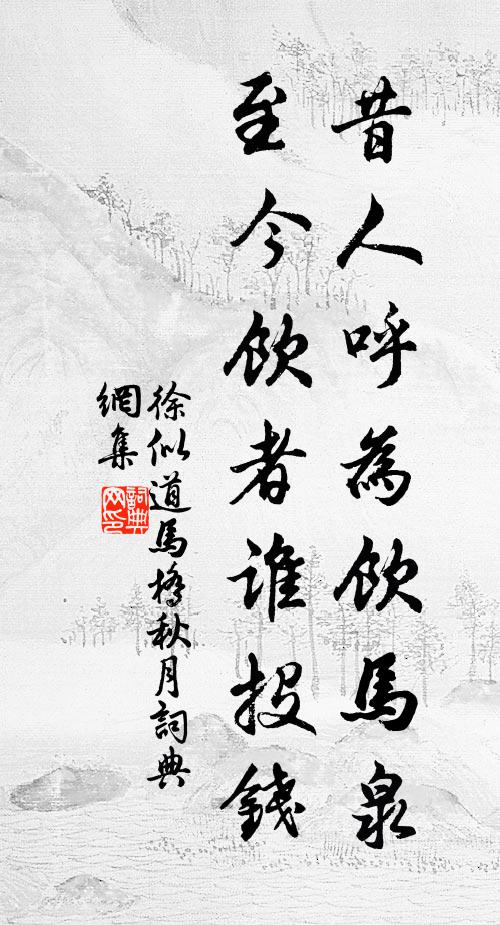 昔人呼為飲馬泉
至今飲者誰投錢
徐似道馬橋秋月詞典
網集
詞典
网印